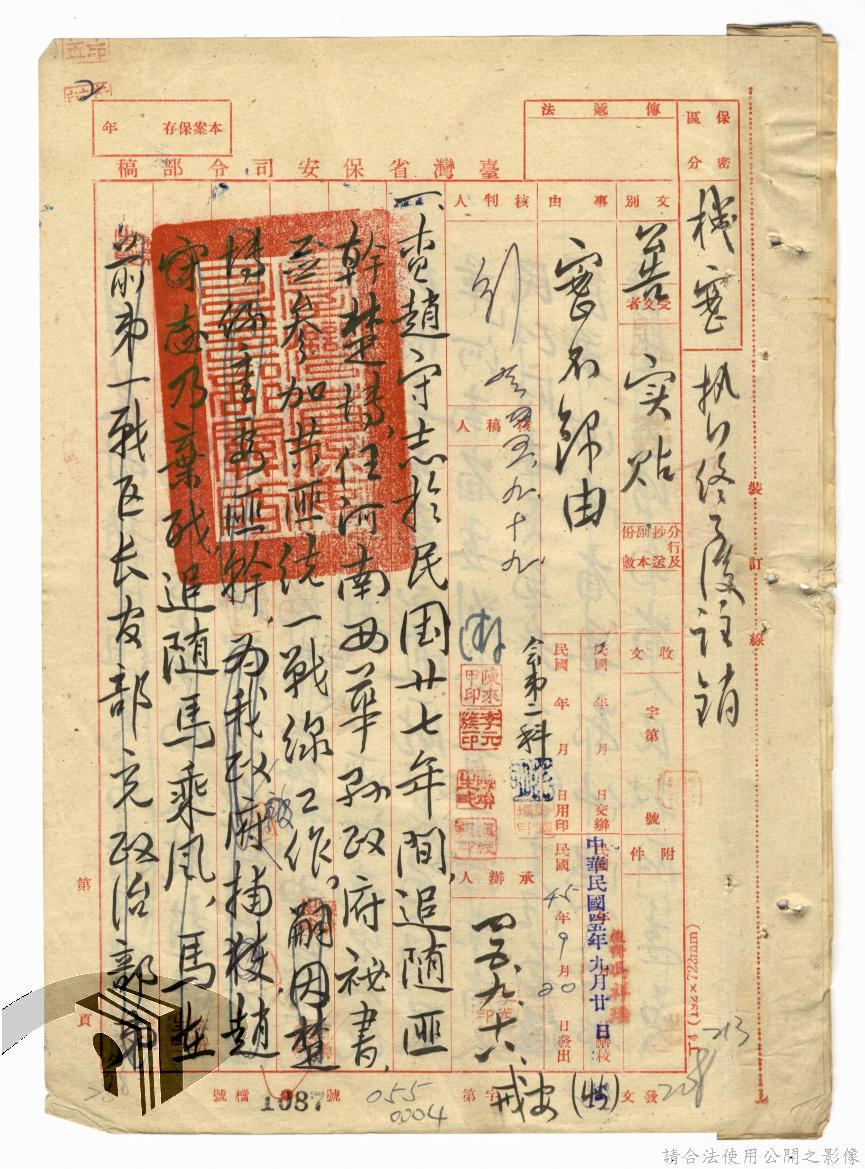 保密區分
機密
執行終了後註銷
傳遞法
本案保存 年
臺灣省保安司令部稿
文別
受文者
實貼
分行及抄送副本份數
收文
字第 號
附件
事由
密不錄由
民國 年 月 日交辦
民國 年 月 日用印
會第二科
中華民國四五年九月廿日
民國45年9月20日發出
核判人
核稿人
承辦人
四五、九、十六
一、查趙守志於民國廿七年間,追隨匪
幹楚博,任河南西華縣政府祕書,
並參加共匪統一戰線工作,嗣因楚
博係重要匪幹,為我政府捕獲,趙
守志乃棄職,追隨馬乘風,馬在
前第一戰區長官部充政治部
裝訂線
第 頁
發文
字第
號
檔號
1087
055
0004
T4 (192×722mm)
213
陳來甲印
請合法使用公開之影像